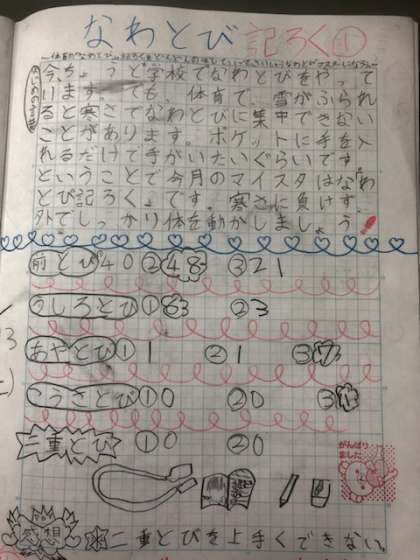 なわとび 記ろく①
今ちょうど学校でなわとびをやって
います。でも、体育で、雪がふられ
ると寒さでなわとびに集中できない
ことがあります。ポケットに手を入
れるだけで手がいたいぐらいです。
ということで今月のマイスタはなわ
とび記ろくです。寒さに負けず、
外でしっかり体を動かしましょう!
前とび ①40 ②48 ③21
うしろとび ①63 ②3
あやとび ①1 ②1 ③
こうさとび ①0 ②0 ③
二重とび ①0 ②0
がんばりました
感想 二重とびを上手くできない。